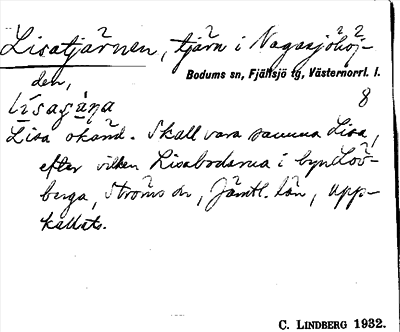 Lisatjärnen, tjärn i Nagasjöhöj-
den,
Bodums sn, Fjällsjö tg, Västernorrl. l.
8
Lisa okänd. Skall vara samma Lisa,
efter vilken Lisabodarna i byn Löv-
berga, Ströms sn, Jämtl. län, upp-
kallats.
C. LINDBERG 1932.